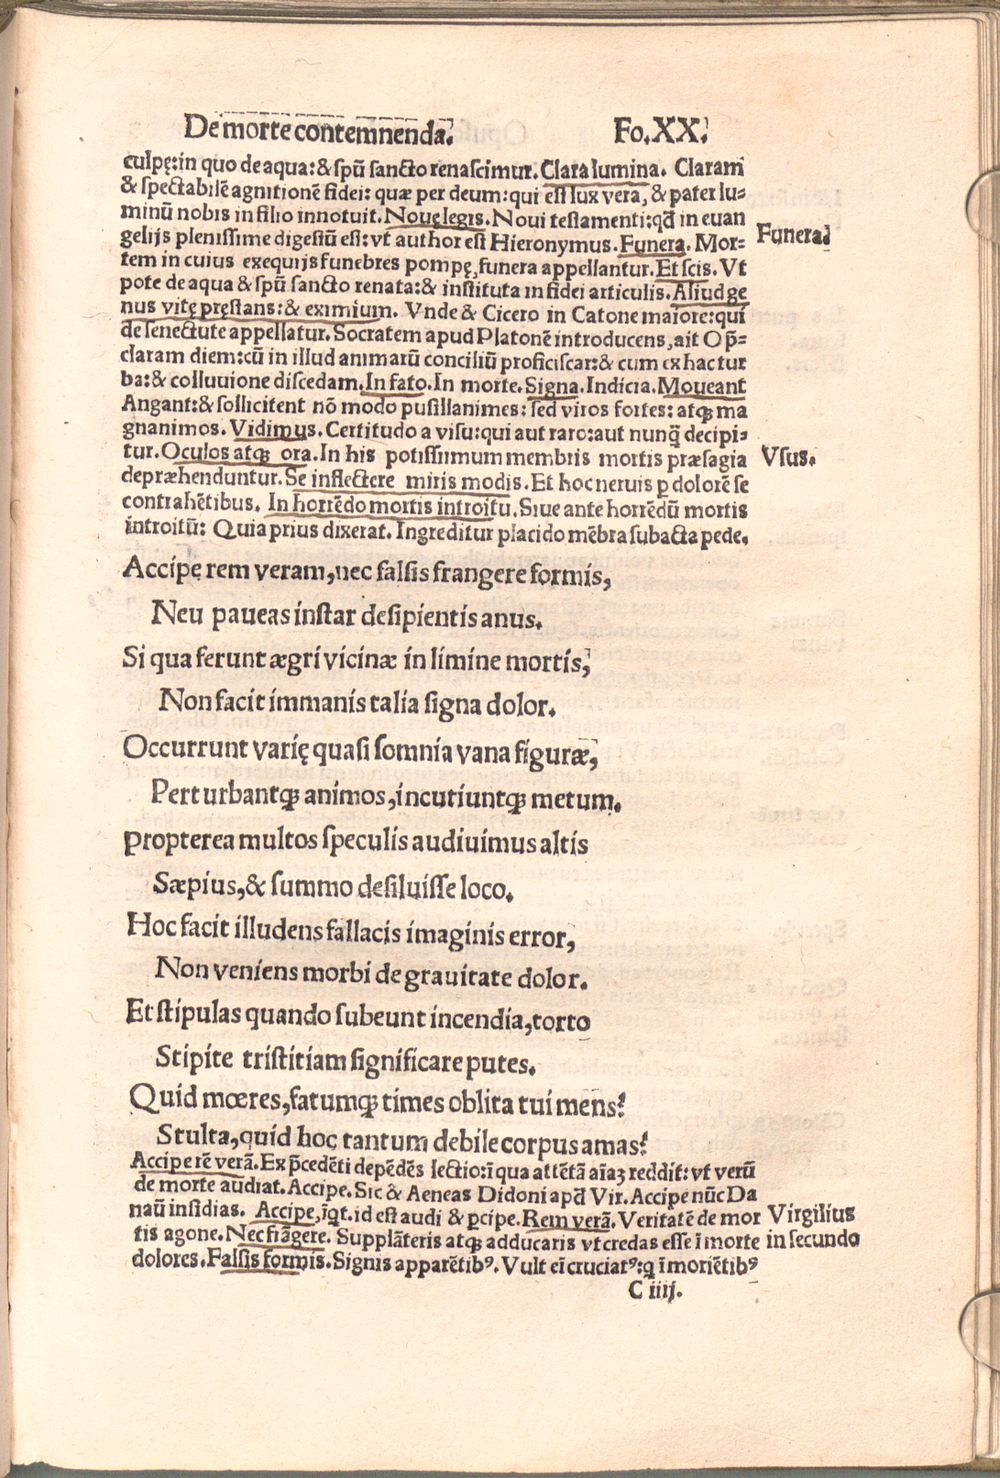 De morte contemnenda. Fo.XX.
culpę: in quo de aqua: & spũ sancto renascimur. Clara lumina. Claram
& spectabilẽ agnitionẽ fidei: quæ per deum: qui est lux vera, & pater lu-
minũ nobis in filio innotuit. Nouę legis. Noui testamenti: qđ in euan
gelijs plenissime digestũ est: vt author est Hieronymus. Funera. Mor-
Funera.
tem in cuius exequijs funebres pompę, funera appellantur. Et scis. Vt
pote de aqua & spũ sancto renata: & instituta in fidei articulis. Aliud ge
nus vitę pręstans: & eximium. Vnde & Cicero in Catone maiore: qui
de senectute appellatur. Socratem apud Platonẽ introducens, ait O p̃-
claram diem: cũ in illud animarũ conciliũ proficiscar: & cum ex hac tur
ba: & colluuione discedam. In fato. In morte. Signa. Indicia. Moueant
Angant: & sollicitent nõ modo pusillanimes: sed viros fortes: atqꝫ ma
gnanimos. Vidimus. Certitudo a visu: qui aut raro: aut nunq̃ decipi-
tur. Oculos atqꝫ ora. In his potissimum membris mortis præsagia
Vsus.
depræhenduntur. Se inflectere miris modis. Et hoc neruis ꝑ dolorẽ se
contrahẽtibus. In horrẽdo mortis introitu. Siue ante horrẽdũ mortis
introitũ: Quia prius dixerat. Ingreditur placido mẽbra subacta pede.
Accipe rem veram, nec falsis frangere formis,
Neu paueas instar desipientis anus.
Si qua ferunt ægri vicinæ in limine mortis,
Non facit immanis talia signa dolor.
Occurrunt varię quasi somnia vana figuræ,
Perturbantqꝫ animos, incutiuntqꝫ metum.
propterea multos speculis audiuimus altis
Sæpius, & summo desiluisse loco.
Hoc facit illudens fallacis imaginis error,
Non veniens morbi de grauitate dolor.
Et stipulas quando subeunt incendia, torto
Stipite tristitiam significare putes.
Quid mœres, fatumqꝫ times oblita tui mens?
Stulta, quid hoc tantum debile corpus amas?
Accipe rẽ verã. Ex p̃cedẽti depẽdẽs lectio: ĩ qua attẽtã aĩaꝫ reddit: vt verũ
de morte audiat. Accipe. Sic & Aeneas Didoni apđ Vir. Accipe nũc Da
naũ insidias. Accipe, ĩqt. id est audi & ꝑcipe. Rem verã. Veritatẽ de mor
Virgilius
tis agone. Nec frãgere. Supplãteris atqꝫ adducaris vt credas esse ĩ morte
in secundo
dolores. Falsis formis. Signis apparẽtibꝰ. Vult eĩ cruciatꝰ: q ĩ moriẽtibꝰ
C iiij.